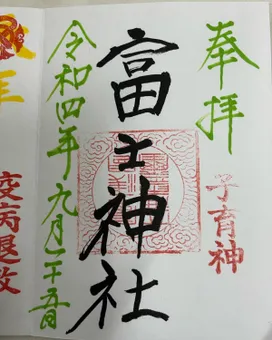 奉拝
子育神
富士神社
令和四年九月二十五日
疫病退散